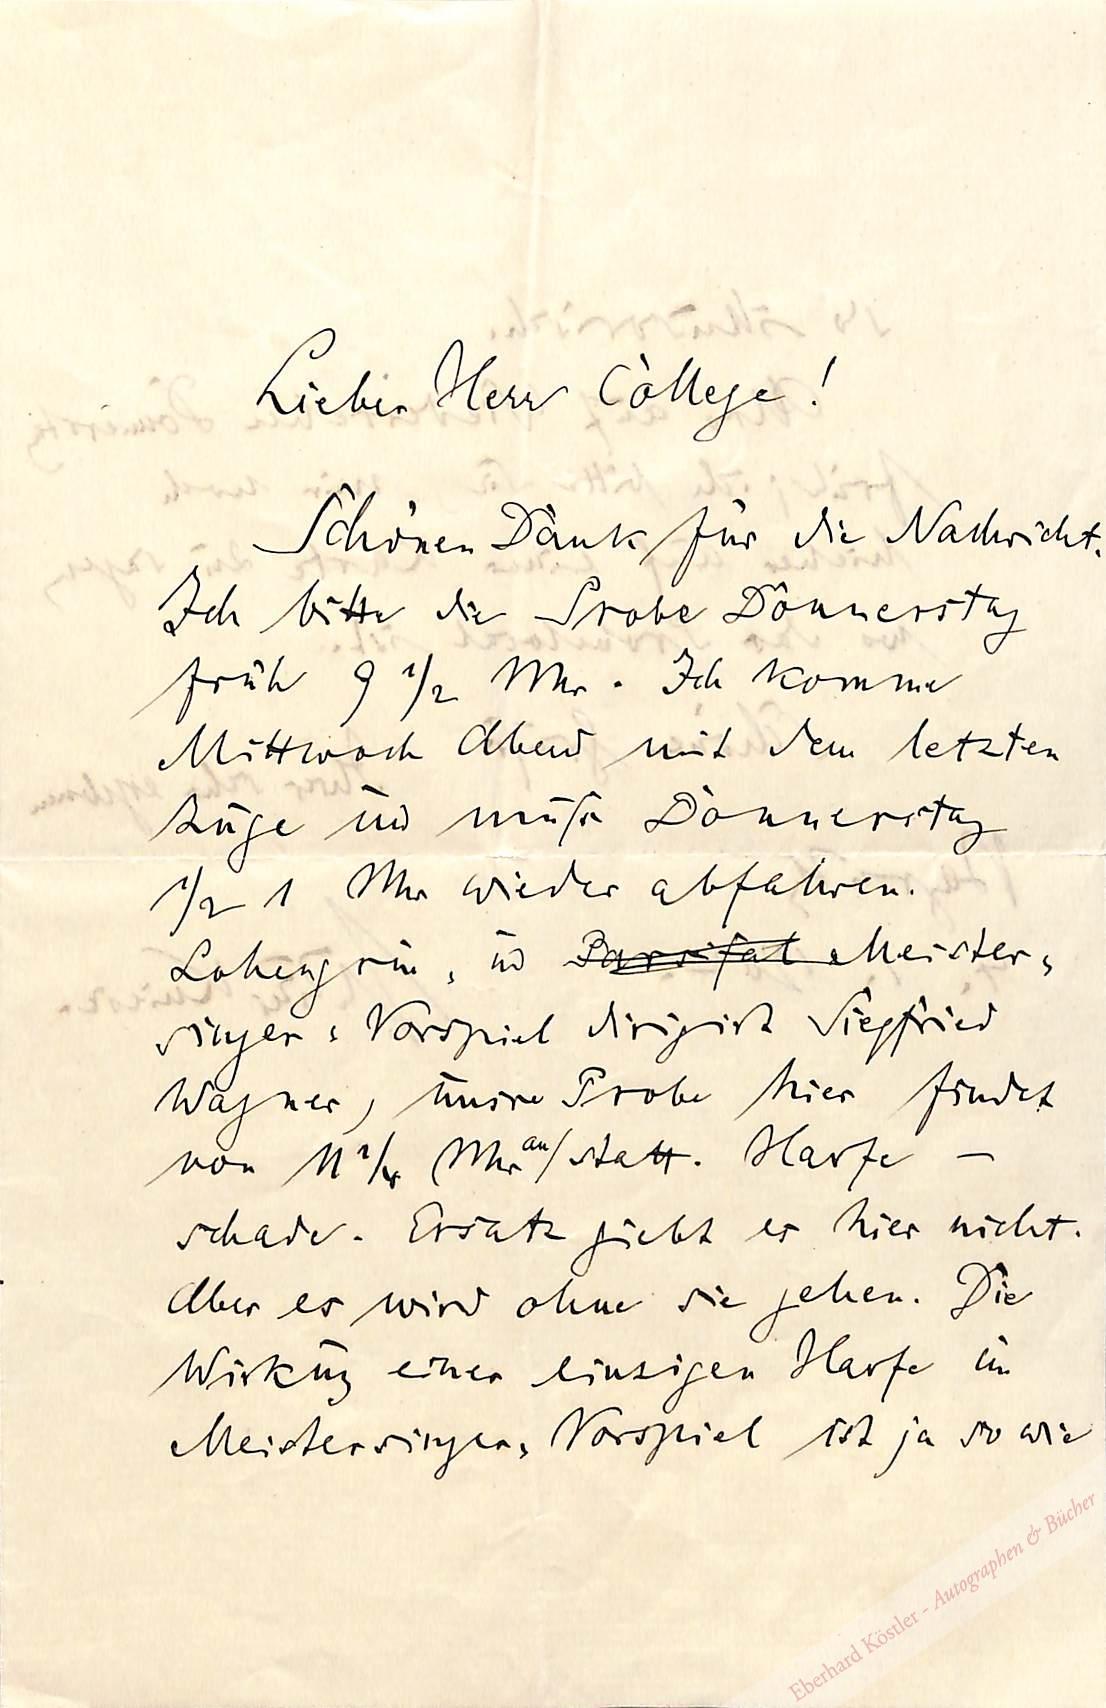 Lieber Herr College!
Schönen Dank für die Nachricht.
Ich bitte die Probe Donnerstag
früh 9 1/2 Uhr. Ich komme
Mittwoch Abend mit dem letzten
Zuge und muß Donnerstag
1/2 1 Uhr wieder abfahren.
Lohengrin, und Parsifal Meister-
singer-Vorspiel dirigirt Siegfried
Wagner, unsre Probe hier findet
von 11 1/4 Uhr an statt. Harfe —
schade. Ersatz giebt es hier nicht.
Aber es wird ohne sie gehen. Die
Wirkung einer einzigen Harfe im
Meistersinger-Vorspiel ist ja so wie
Eberhard Köstler - Autographen & Bücher